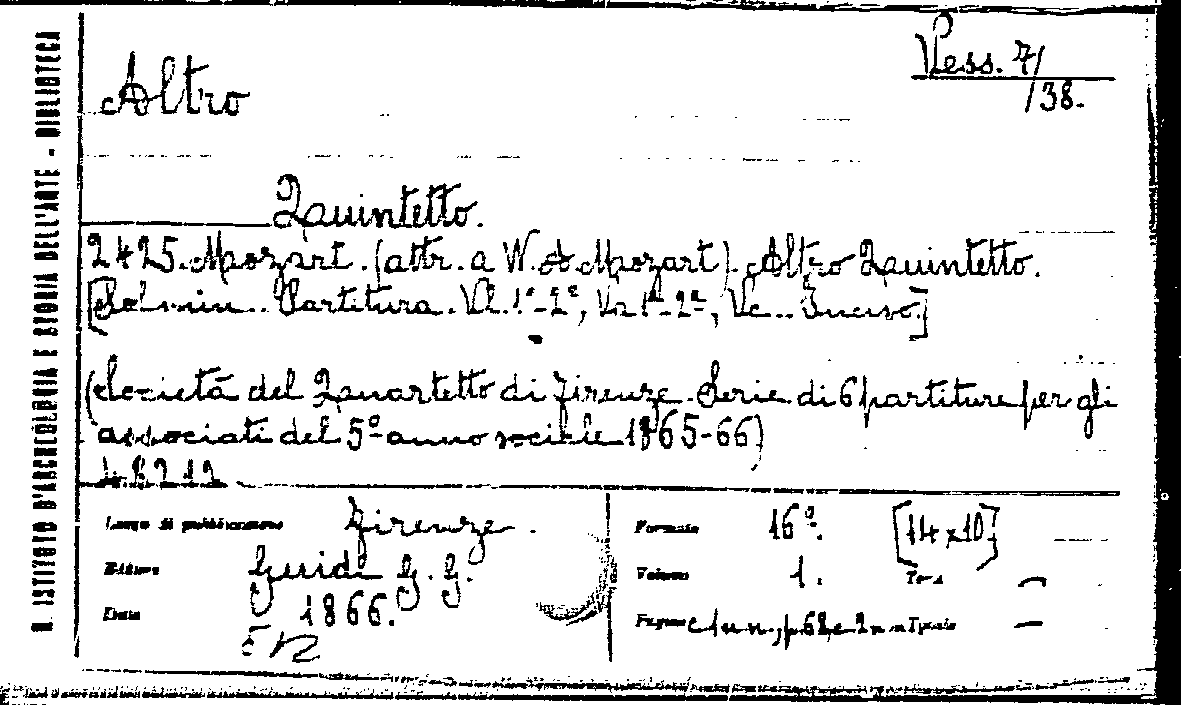 R. ISTITUTO D'ARCHEOLOGIA E STORIA DELL'ARTE - BIBLIOTECA
Vess. 7/
/38.
Altro
Quintetto.
2425. Mozart. (attr. a W. A. Mozart). Altro Quintetto.
[Sol min.. Partitura. Vl. 1º-2º, Vla 1ª-2ª, Vc.. Inciso.]
(Società del Quartetto di Firenze. Serie di 6 partiture per gli
associati del 5º anno sociale 1865-66)
48212
Luogo di pubblicazione Firenze.
Editore Guidi G. G.
Data 1866.
Formato 16º. [14 x 10]
Volumi 1. Tom. —
Pagine c 1 n n., p. 62, e 2 n n Tavole —